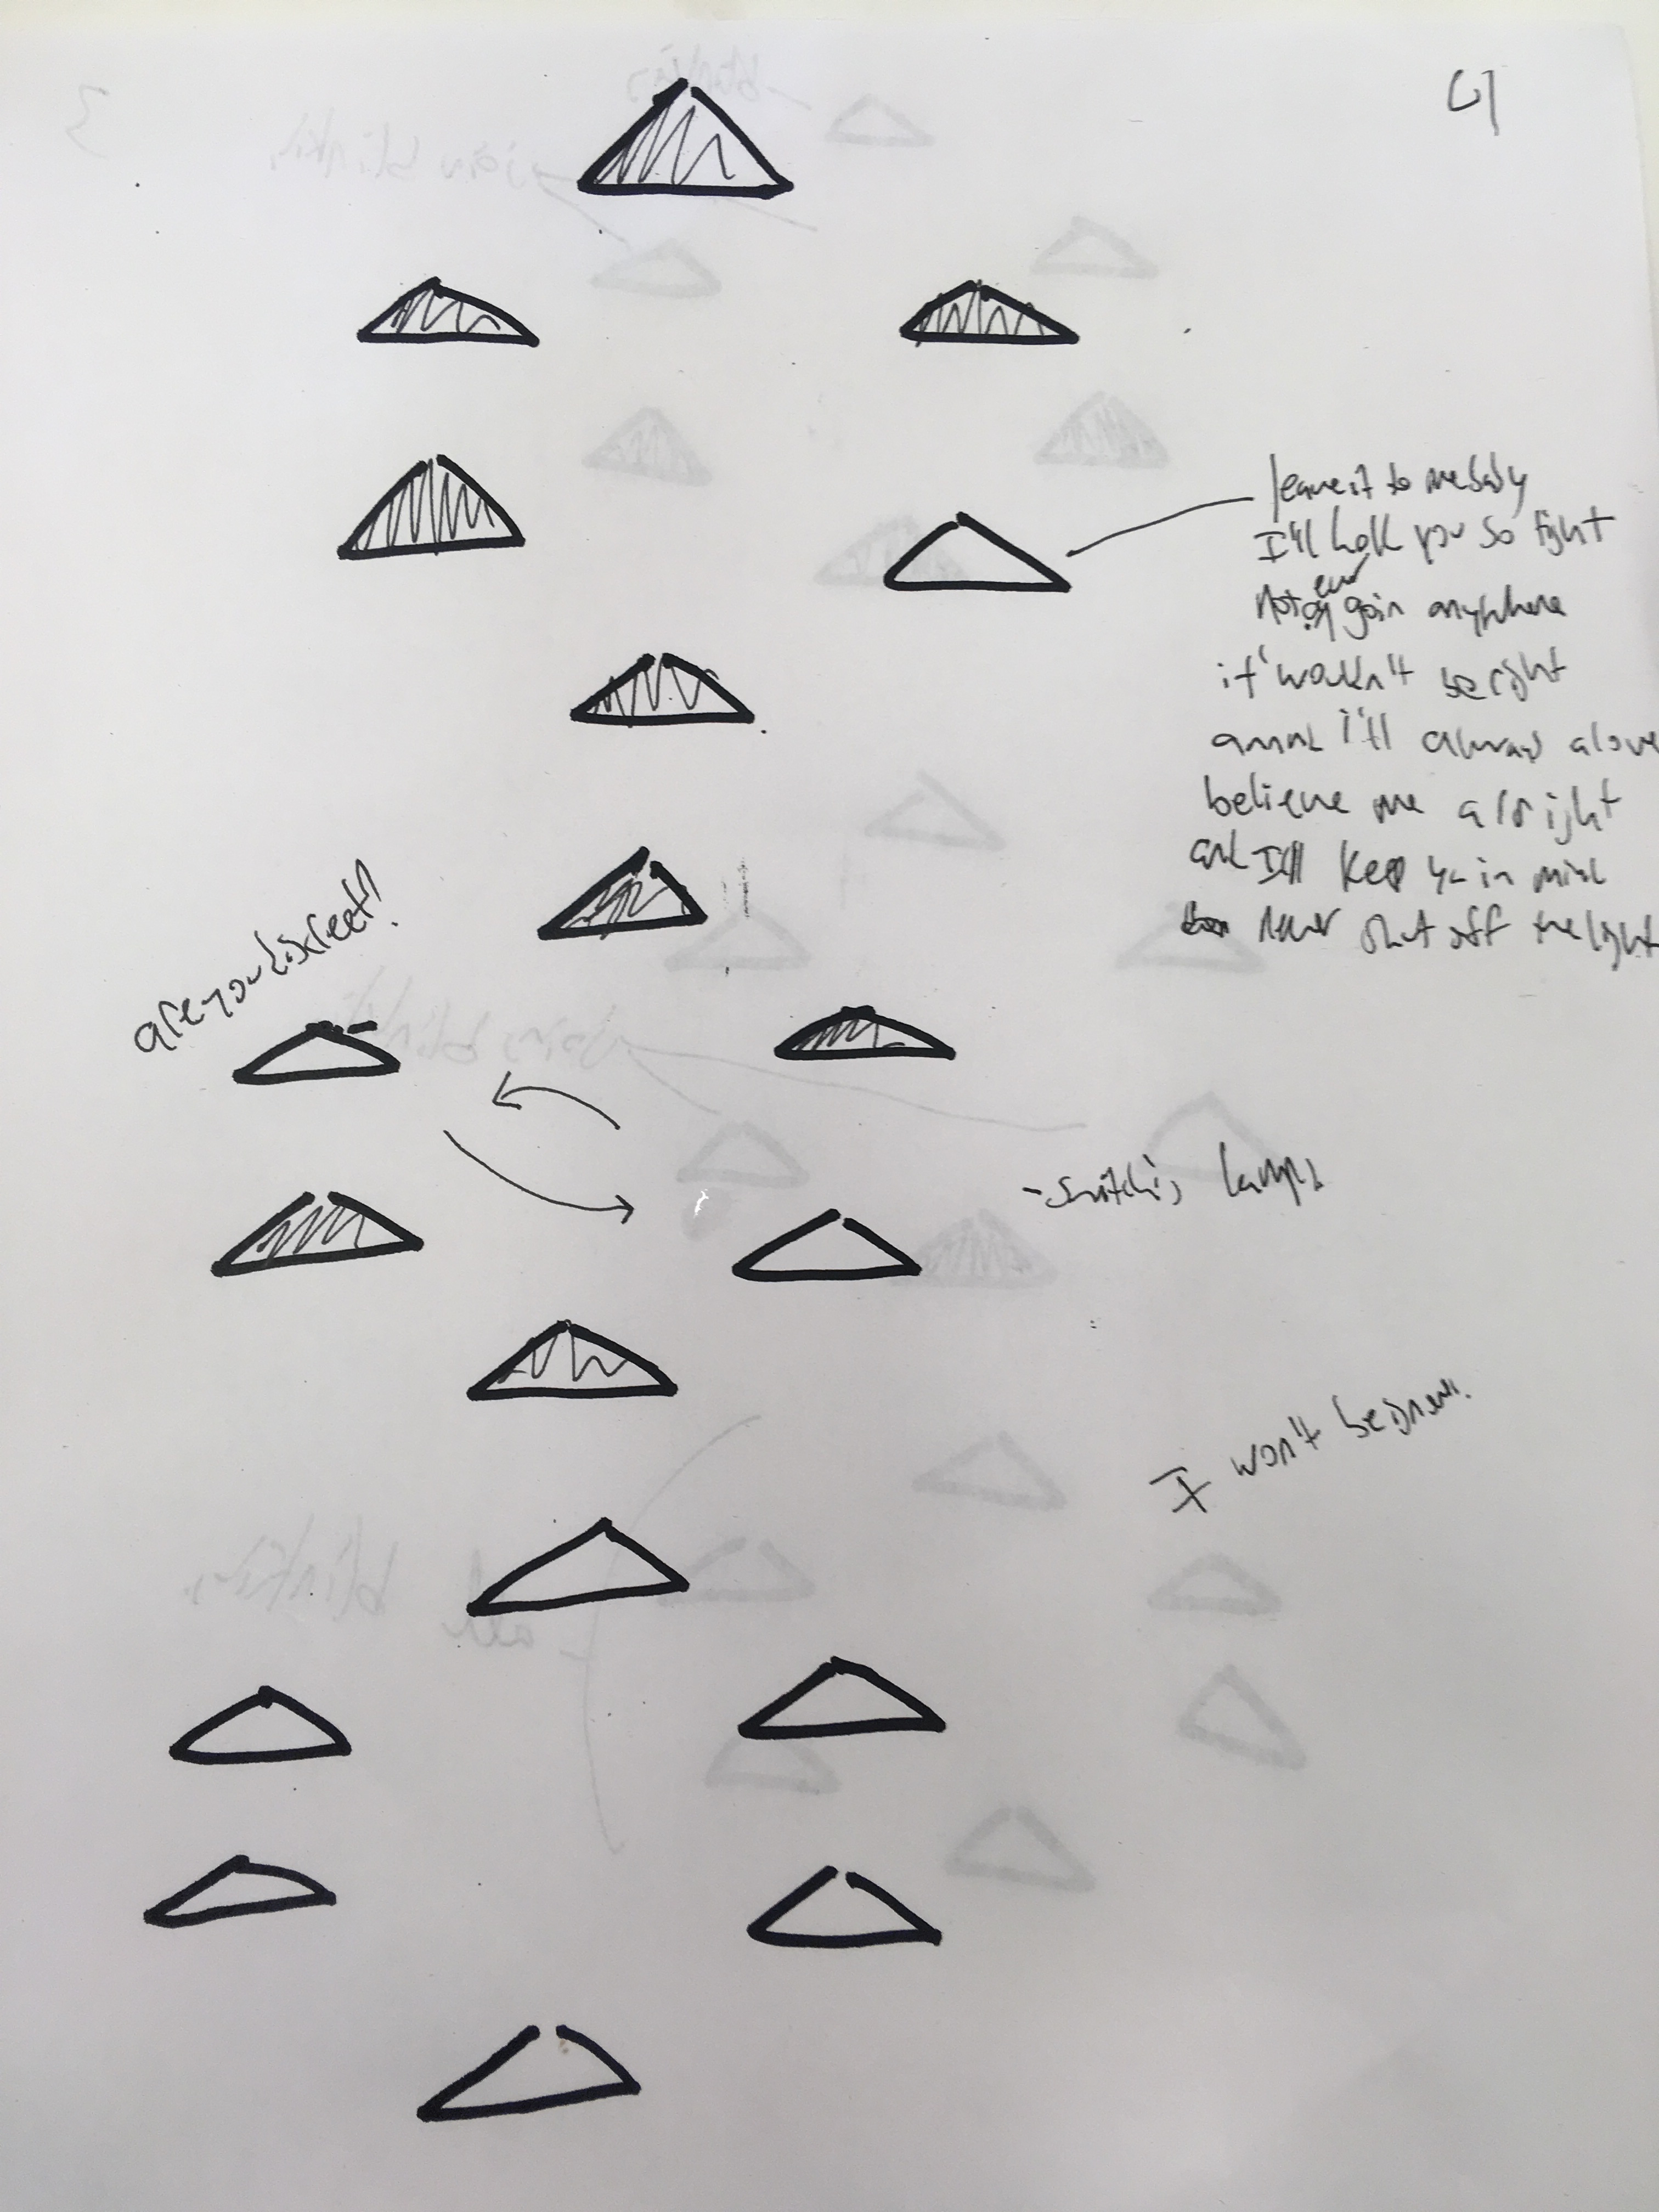 4
leave it to me baby
I'll hold you so tight
Not ever goin anywhere
it wouldn't be right
I'll always
believe me alright
and I'll keep ya in mind
never shut off the light
are you discreet?
- switchin lamps
I won't